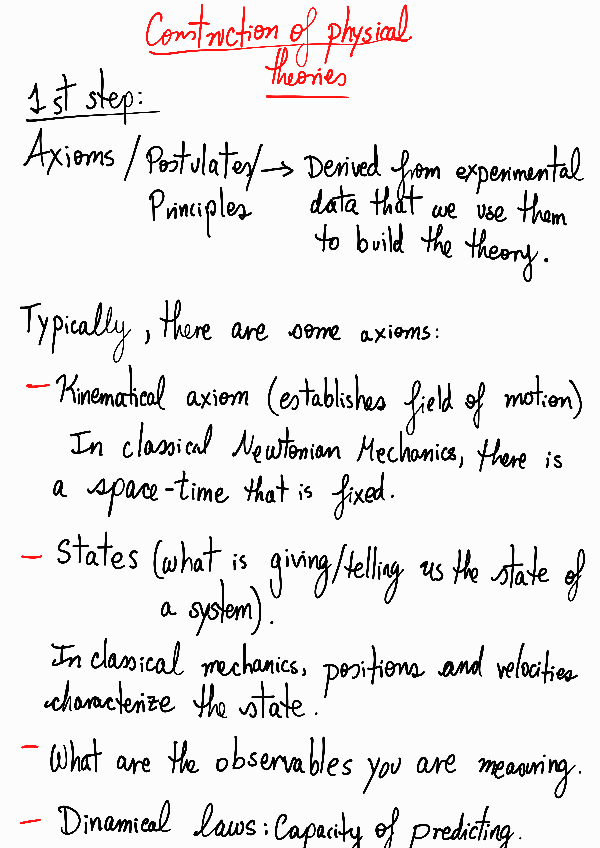 Construction of physical
theories
1st step:
Axioms / Postulates/ → Derived from experimental
Principles data that we use them
to build the theory.
Typically, there are some axioms:
- Kinematical axiom (establishes field of motion)
In classical Newtonian Mechanics, there is
a space-time that is fixed.
- States (what is giving/telling us the state of
a system).
In classical mechanics, positions and velocities
characterize the state.
- What are the observables you are measuring.
- Dinamical laws: Capacity of predicting.